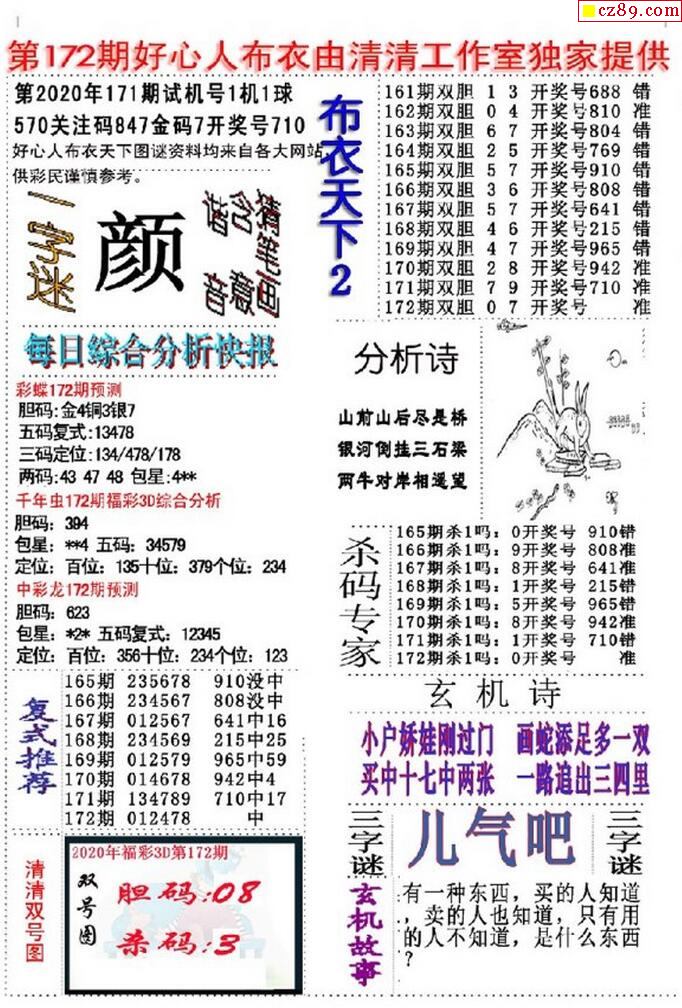 cz89.com
第172期好心人布衣由清清工作室独家提供
第2020年171期试机号1机1球
570关注码847金码7开奖号710
好心人布衣天下图谜资料均来自各大网站,
供彩民谨慎参考。
一字迷
颜
谐音
含意
猜笔画
布衣天下2
161期双胆 1 3 开奖号688 错
162期双胆 0 4 开奖号810 准
163期双胆 6 7 开奖号804 错
164期双胆 2 5 开奖号769 错
165期双胆 5 7 开奖号910 错
166期双胆 3 6 开奖号808 错
167期双胆 5 7 开奖号641 错
168期双胆 4 6 开奖号215 错
169期双胆 4 7 开奖号965 错
170期双胆 2 8 开奖号942 准
171期双胆 7 9 开奖号710 准
172期双胆 0 7 开奖号 准
每日综合分析快报
彩蝶172期预测
胆码:金4铜3银7
五码复式:13478
三码定位:134/478/178
两码:43 47 48 包星:4**
千年虫172期福彩3D综合分析
胆码: 394
包星: **4 五码: 34579
定位: 百位: 135十位: 379个位: 234
中彩龙172期预测
胆码: 623
包星: *2* 五码复式: 12345
定位: 百位: 356十位: 234个位: 123
分析诗
山前山后尽是桥
银河倒挂三石梁
两牛对岸相遥望
杀码专家
165期杀1吗: 0开奖号 910错
166期杀1吗: 9开奖号 808准
167期杀1吗: 8开奖号 641准
168期杀1吗: 1开奖号 215错
169期杀1吗: 5开奖号 965错
170期杀1吗: 8开奖号 942准
171期杀1吗: 1开奖号 710错
172期杀1吗: 0开奖号 准
复式推荐
165期 235678 910没中
166期 234567 808没中
167期 012567 641中16
168期 234569 215中25
169期 012579 965中59
170期 014678 942中4
171期 134789 710中17
172期 012478 中
玄机诗
小户娇娃刚过门 画蛇添足多一双
买中十七中两张 一路追出三四里
三字谜
儿气吧
三字谜
清清双号图
2020年福彩3D第172期
双号图
胆码:08
杀码:3
玄机故事
有一种东西，买的人知道
，卖的人也知道，只有用
的人不知道，是什么东西
？